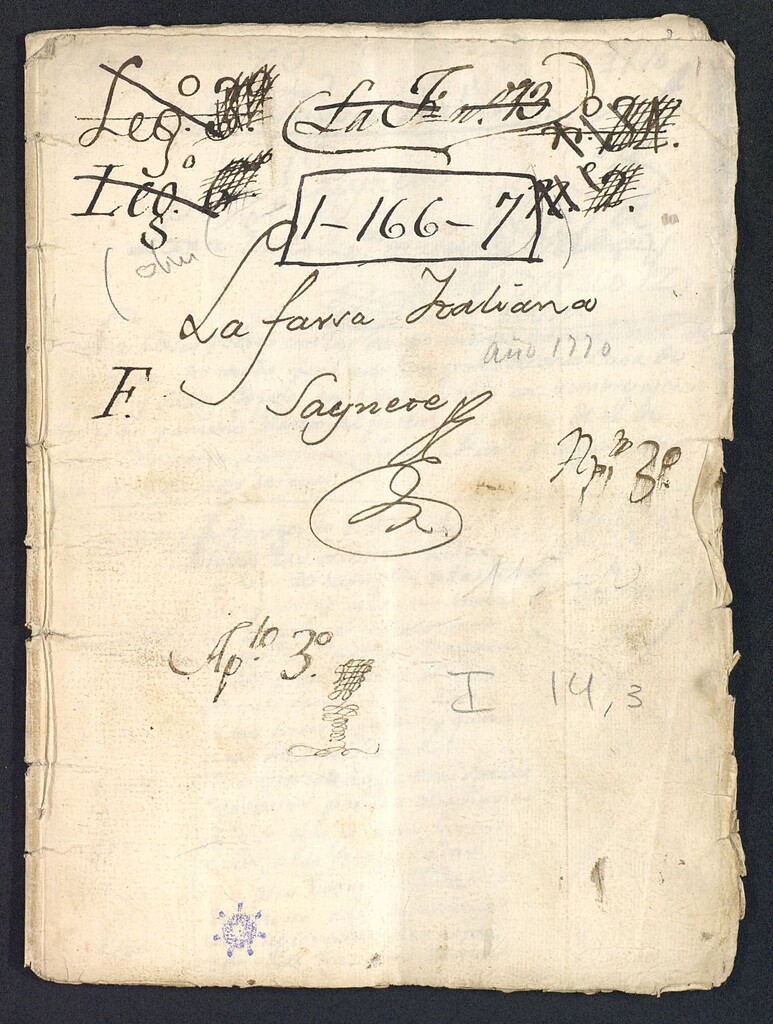 Leg.º 3º. La Fª nº. 73
Leg.º 6º
1-166-7
La farsa Italiana
año 1770
F. Saynete
Apto 3º
Apto 3º
I 14,3